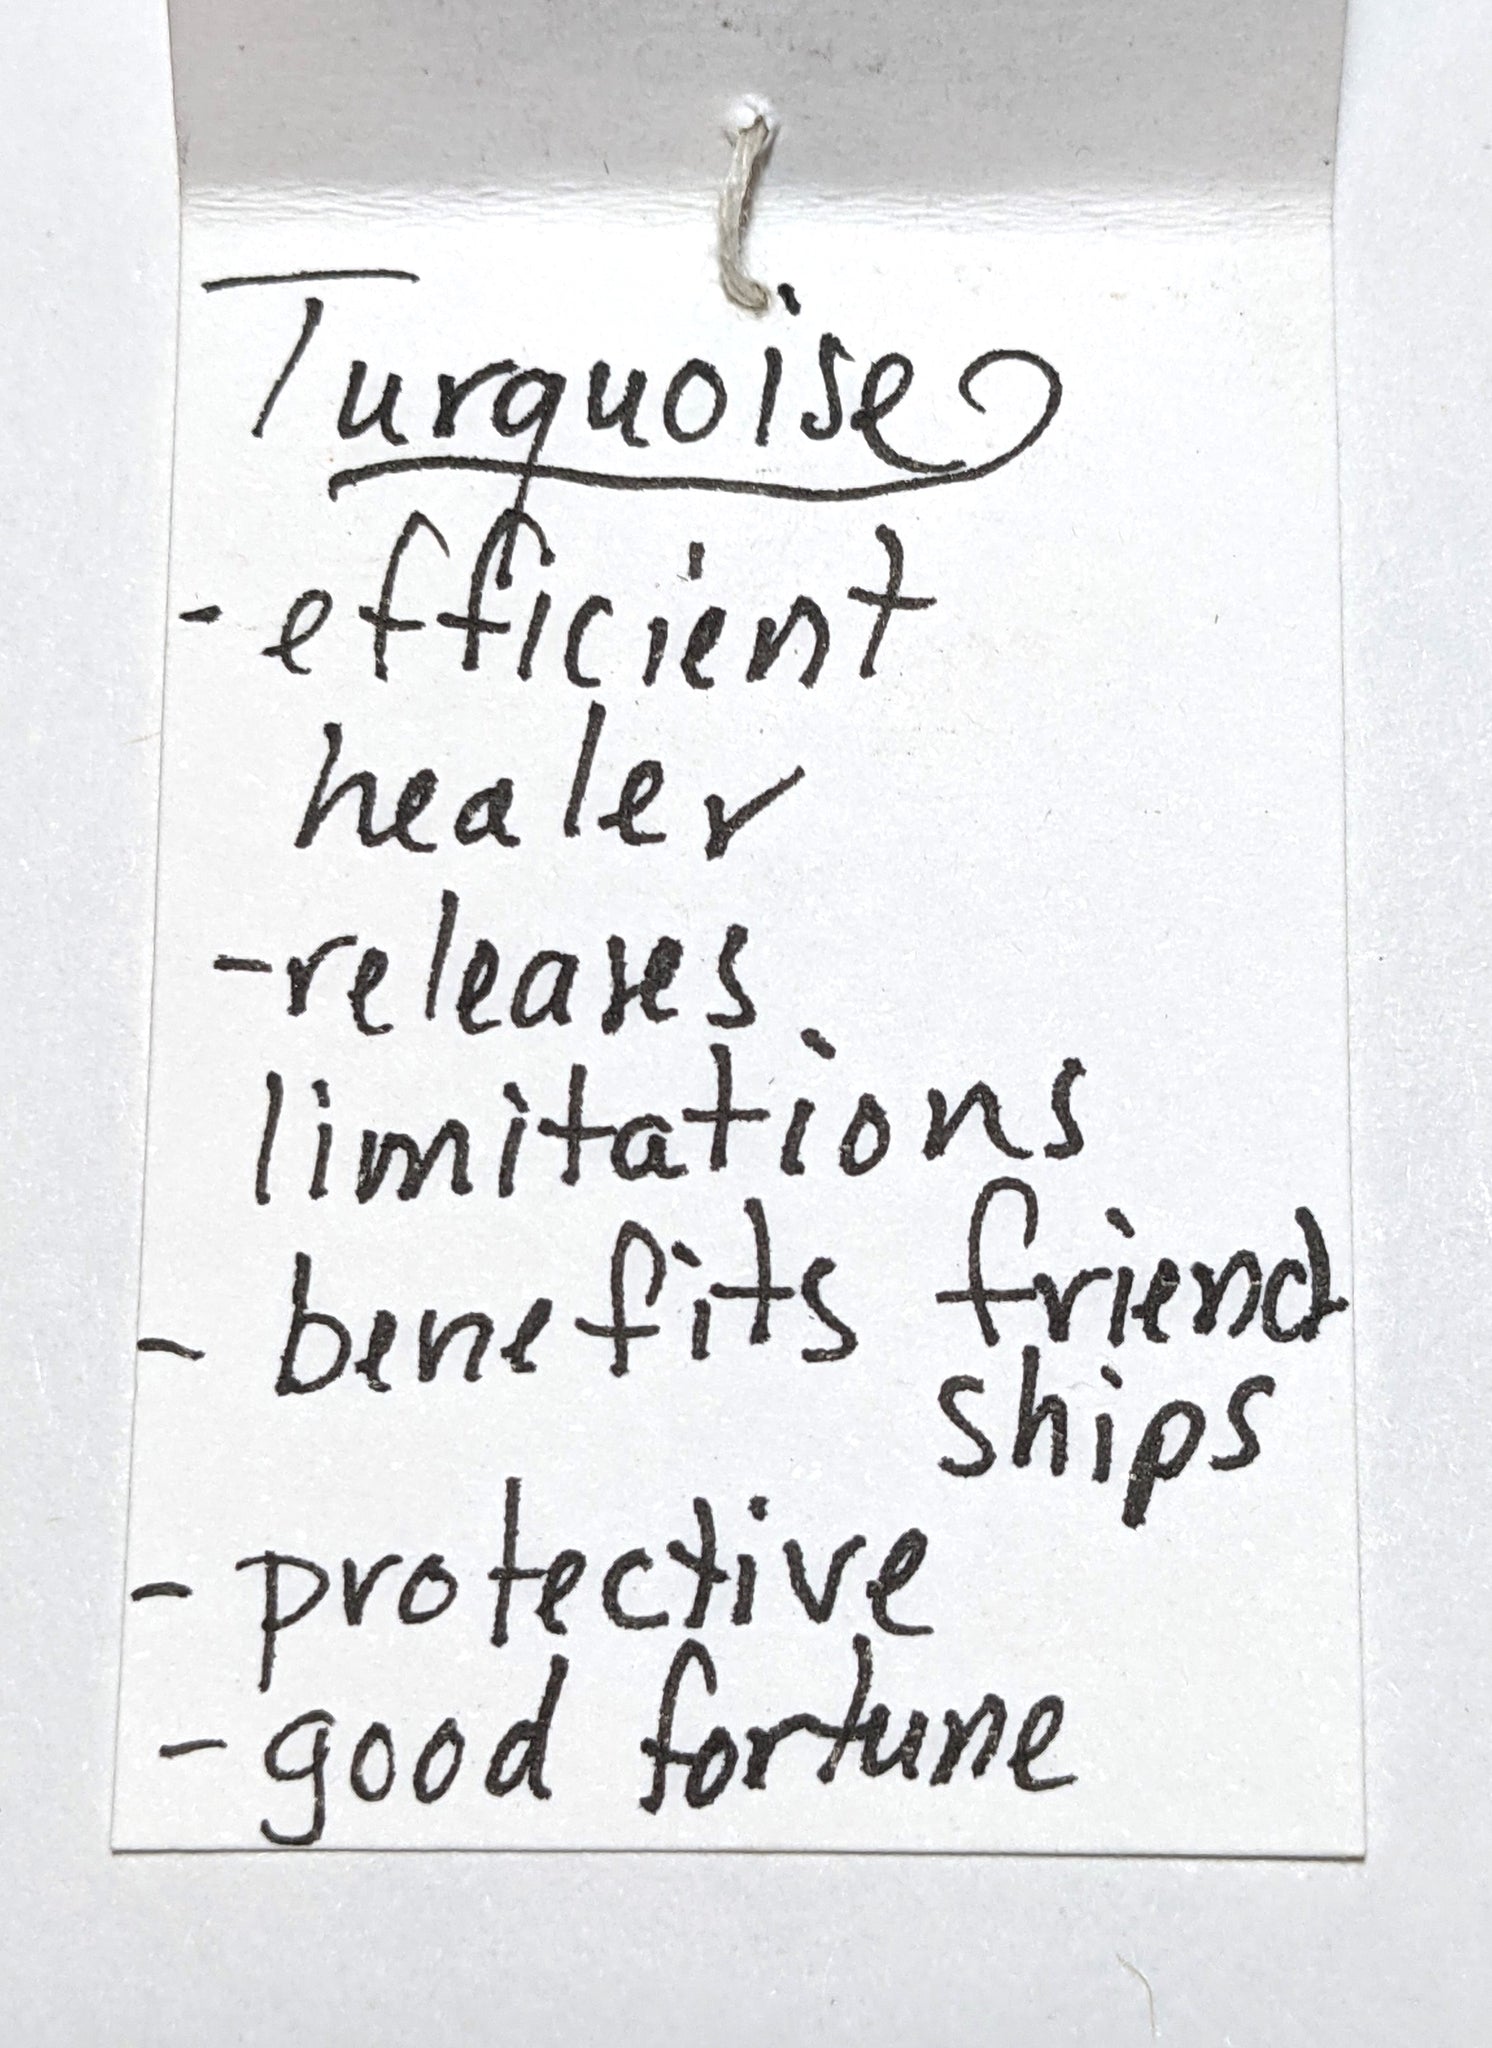 Turquoise
- efficient
healer
- releases
limitations
- benefits friend
ships
- protective
- good fortune